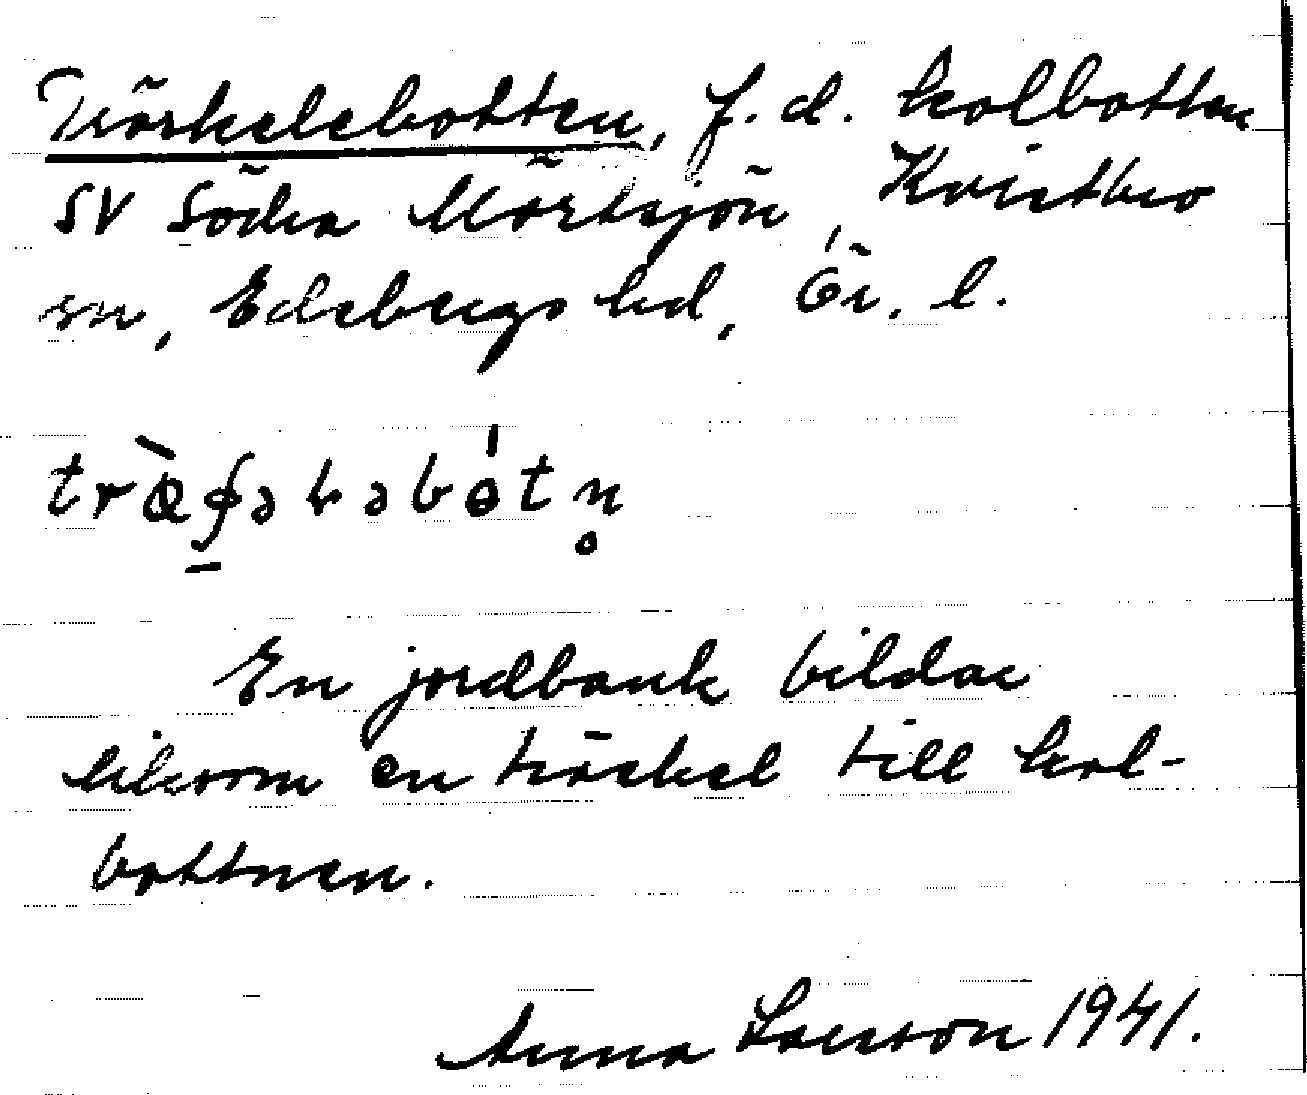 Tröskelebotten, f.d. kolbotten
SV Södra Mörtsjön, Kvistbro
sn, Edsbergs hd, Ör. l.
En jordbank bildar
liksom en tröskel till kol-
bottnen.
Anna Larsson 1941.